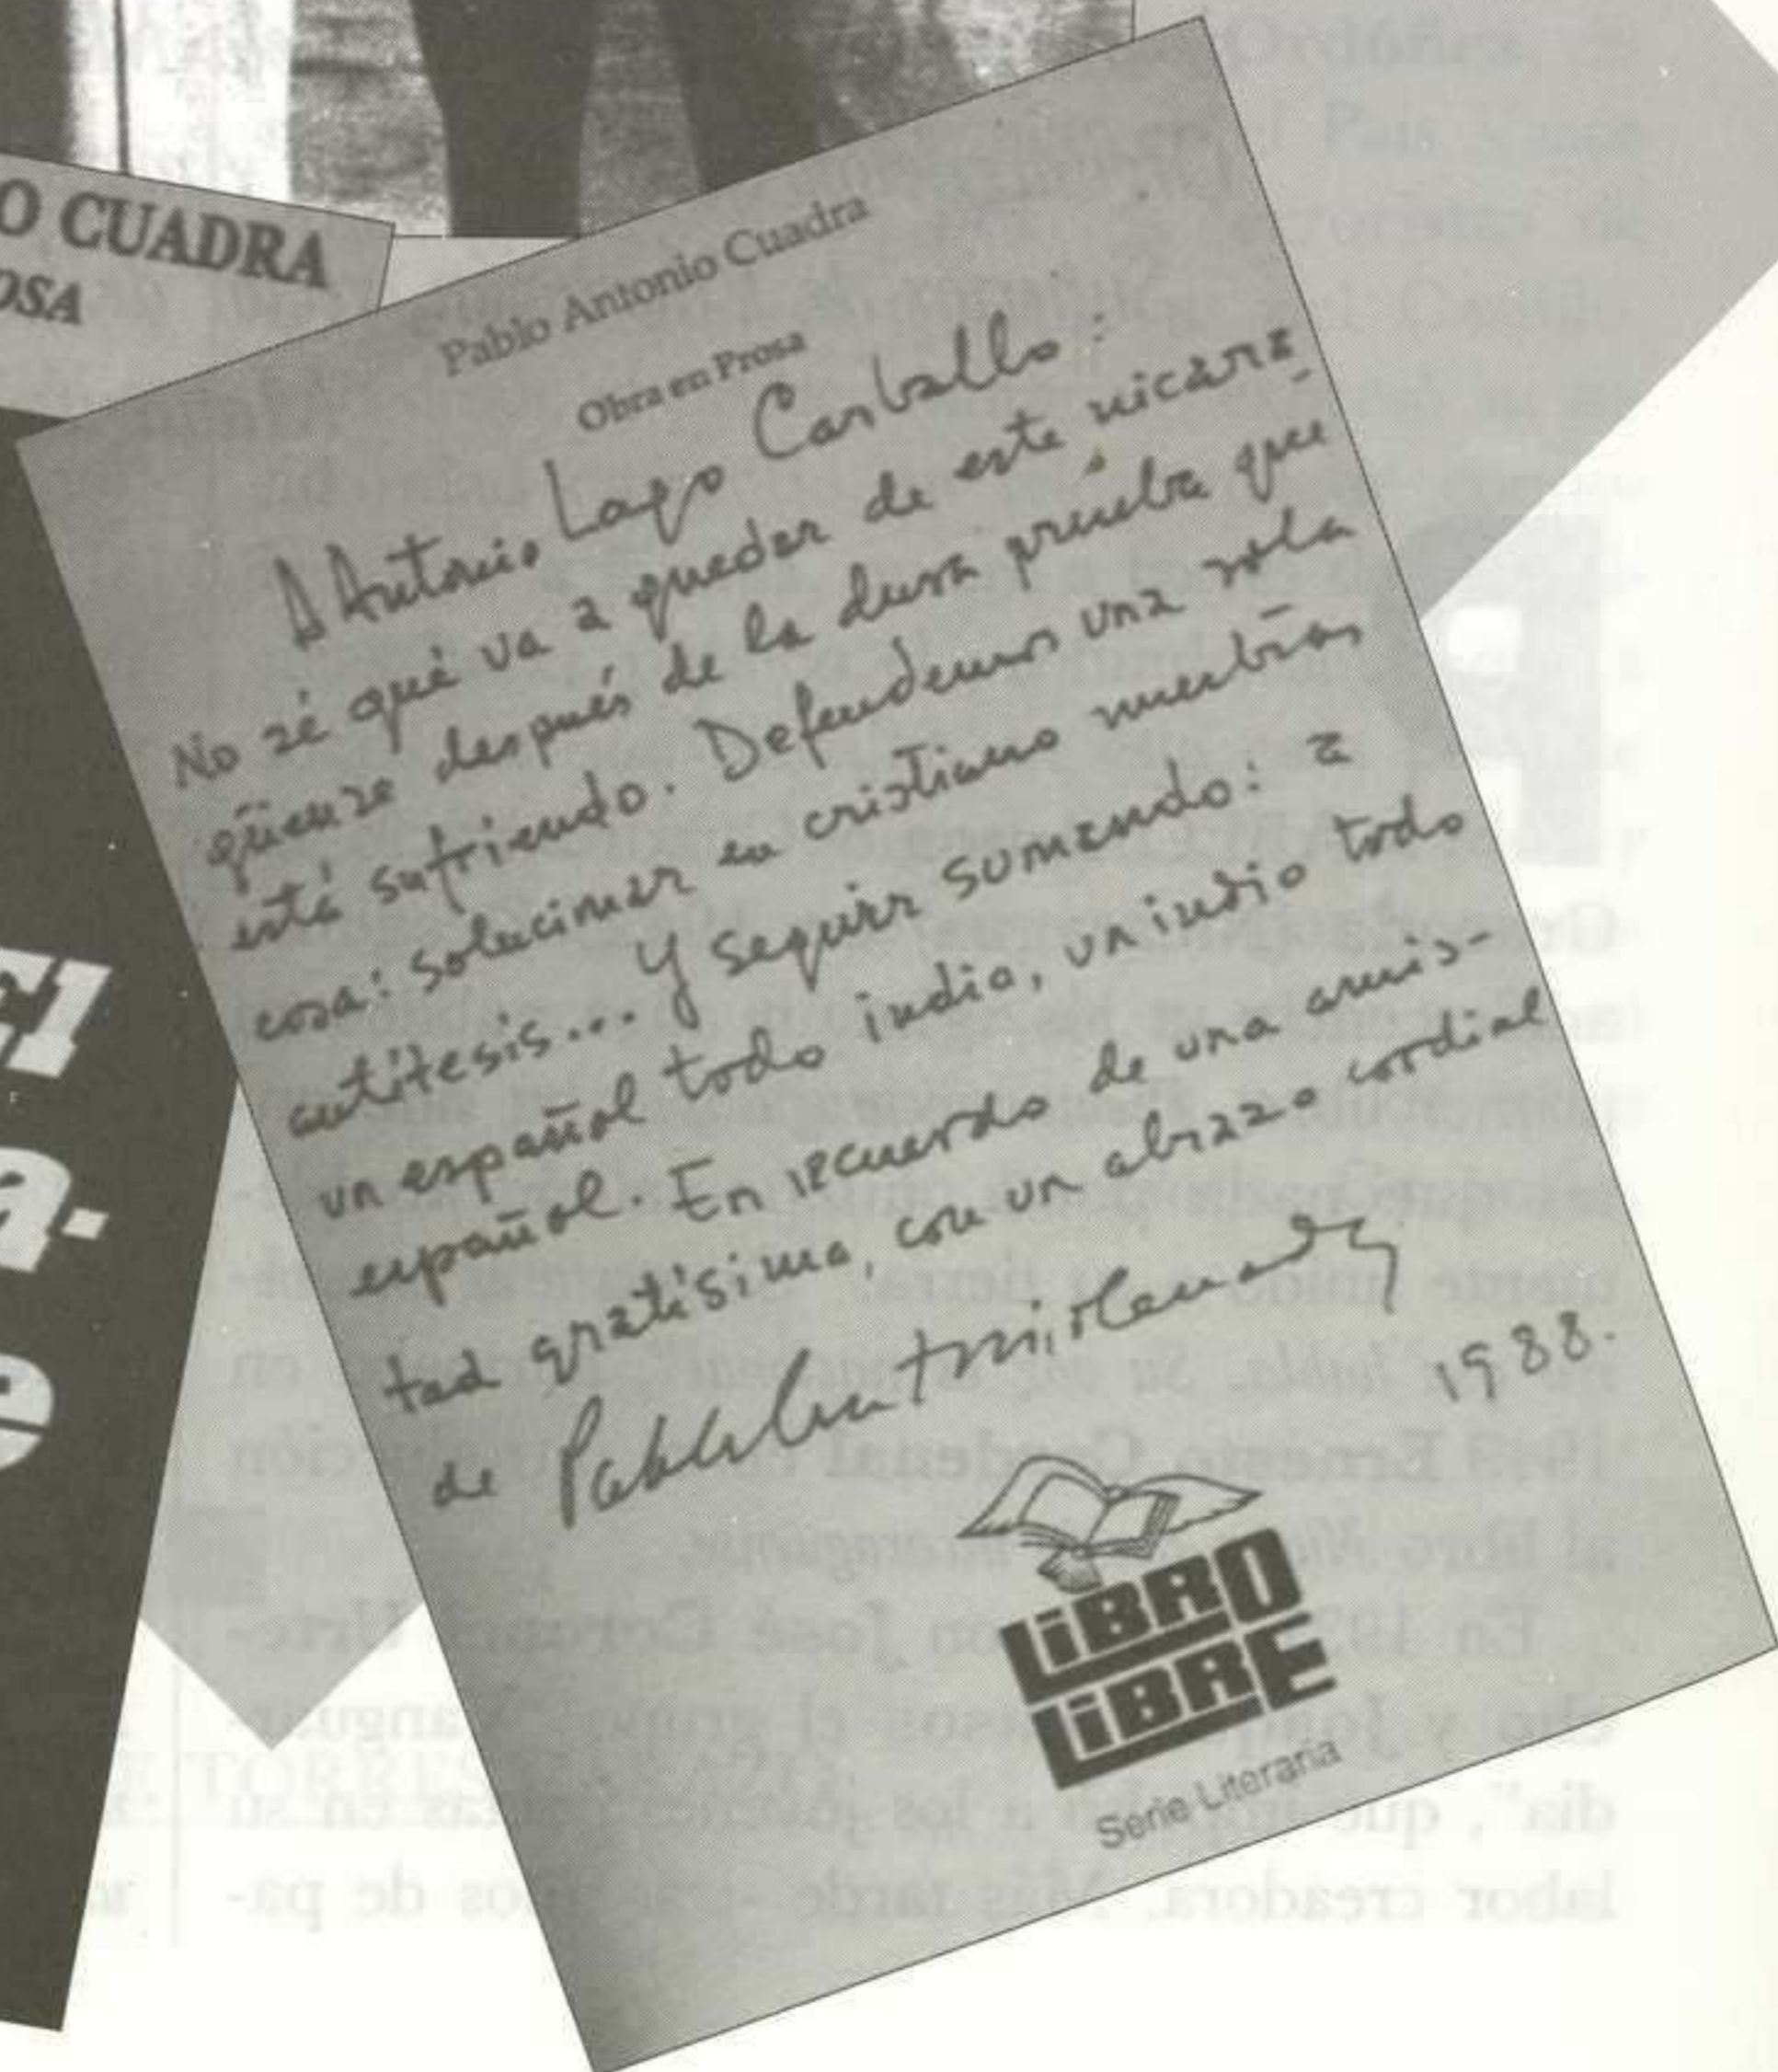 O CUADRA
OSA
Pablo Antonio Cuadra
Obra en Prosa
A Antonio Lago Carballo:
No sé qué va a quedar de este nicara-
güense después de la dura prueba que
está sufriendo. Defendemos una sola
cosa: solucionar en cristiano nuestras
antítesis... Y seguir sumando: a
un español todo indio, un indio todo
español. En recuerdo de una amis-
tad gratísima, con un abrazo cordial
de Pablo Antonio Cuadra
1988.
LiBRO
LiBRE
Serie Literaria
El
a.
e